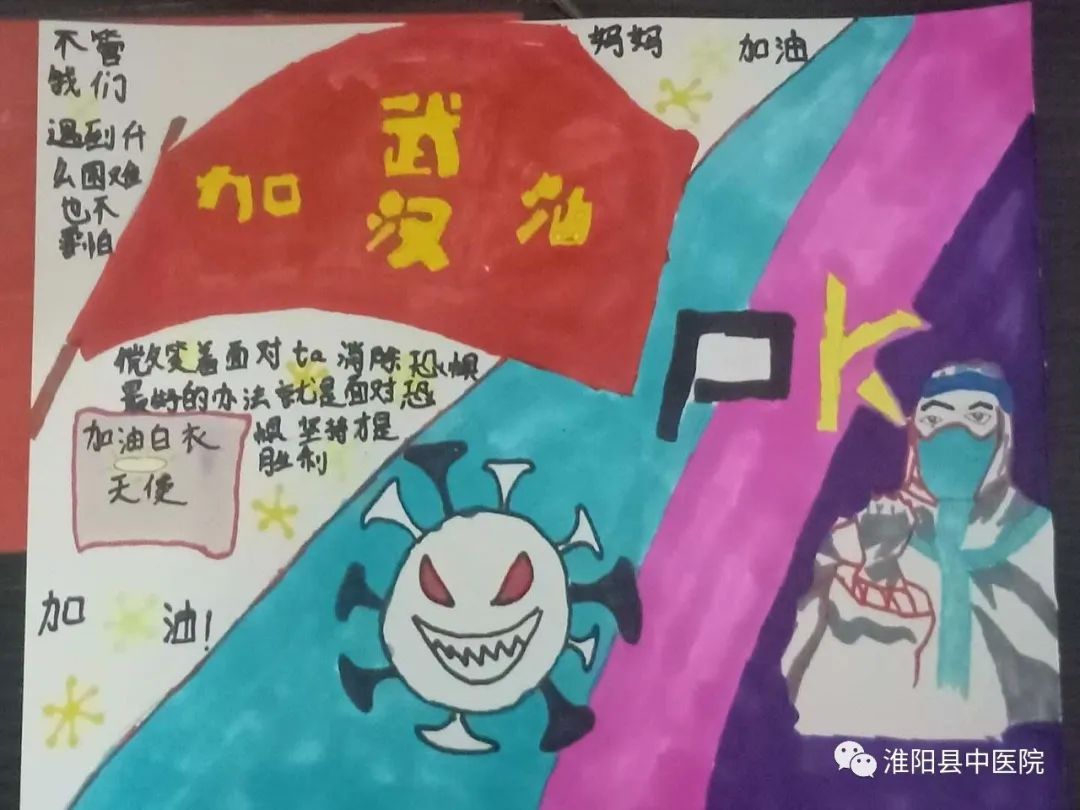 不管
我们
遇到什
么困难
也不
害怕
妈妈 加油
武
汉
加 油
PK
微笑着面对ta 消除恐惧
最好的办法就是面对恐
惧 坚持才是
胜利
加油白衣
天使
加 油!
淮阳县中医院